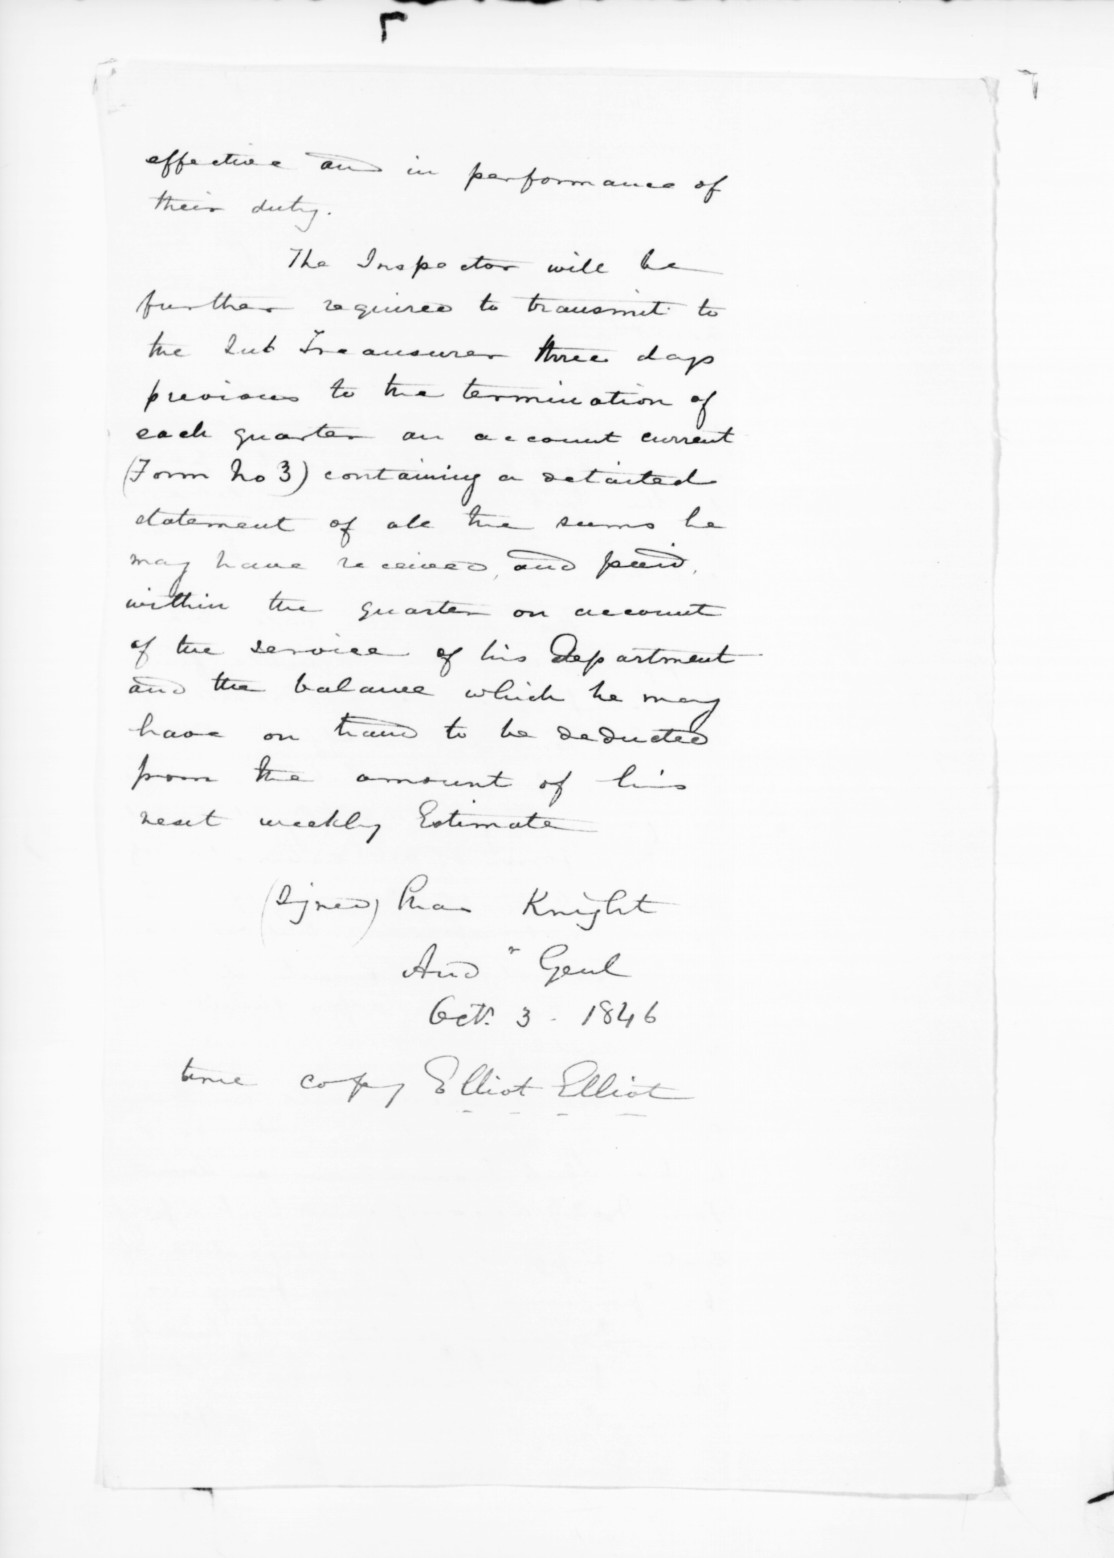 effective and in performance of
their duty.
The Inspector will be
further required to transmit to
the Sub Treausurer three days
previous to the termination of
each quarter an account current
(Form No 3) containing a detailed
statement of all the sums he
may have received, and paid,
within the quarter on account
of the service of his Department
and the balance which he may
have on hand to be deducted
from the amount of his
next weekly Estimate
(Signed) Chas Knight
Aud r Genl
Oct. 3 - 1846
true copy Elliot Elliot